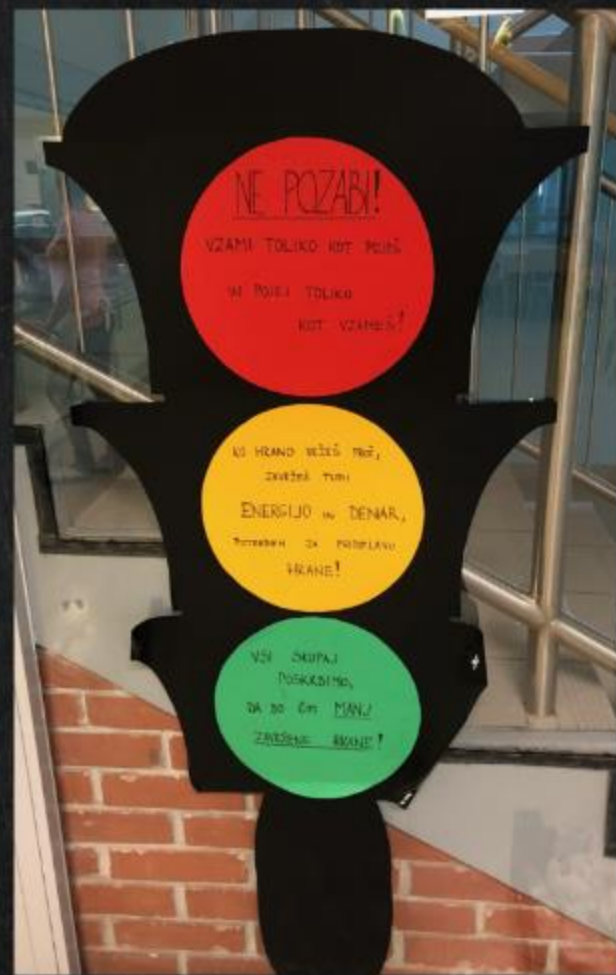 NE POZABI!
VZAMI TOLIKO KOT POJEŠ
IN POJEJ TOLIKO
KOT VZAMEŠ!
KO HRANO VRŽEŠ PROČ,
ZAVRŽEŠ TUDI
ENERGIJO IN DENAR,
POTREBEN ZA PRIDELAVO
HRANE!
VSI SKUPAJ
POSKRBIMO,
DA BO ČIM MANJ
ZAVRŽENE HRANE!